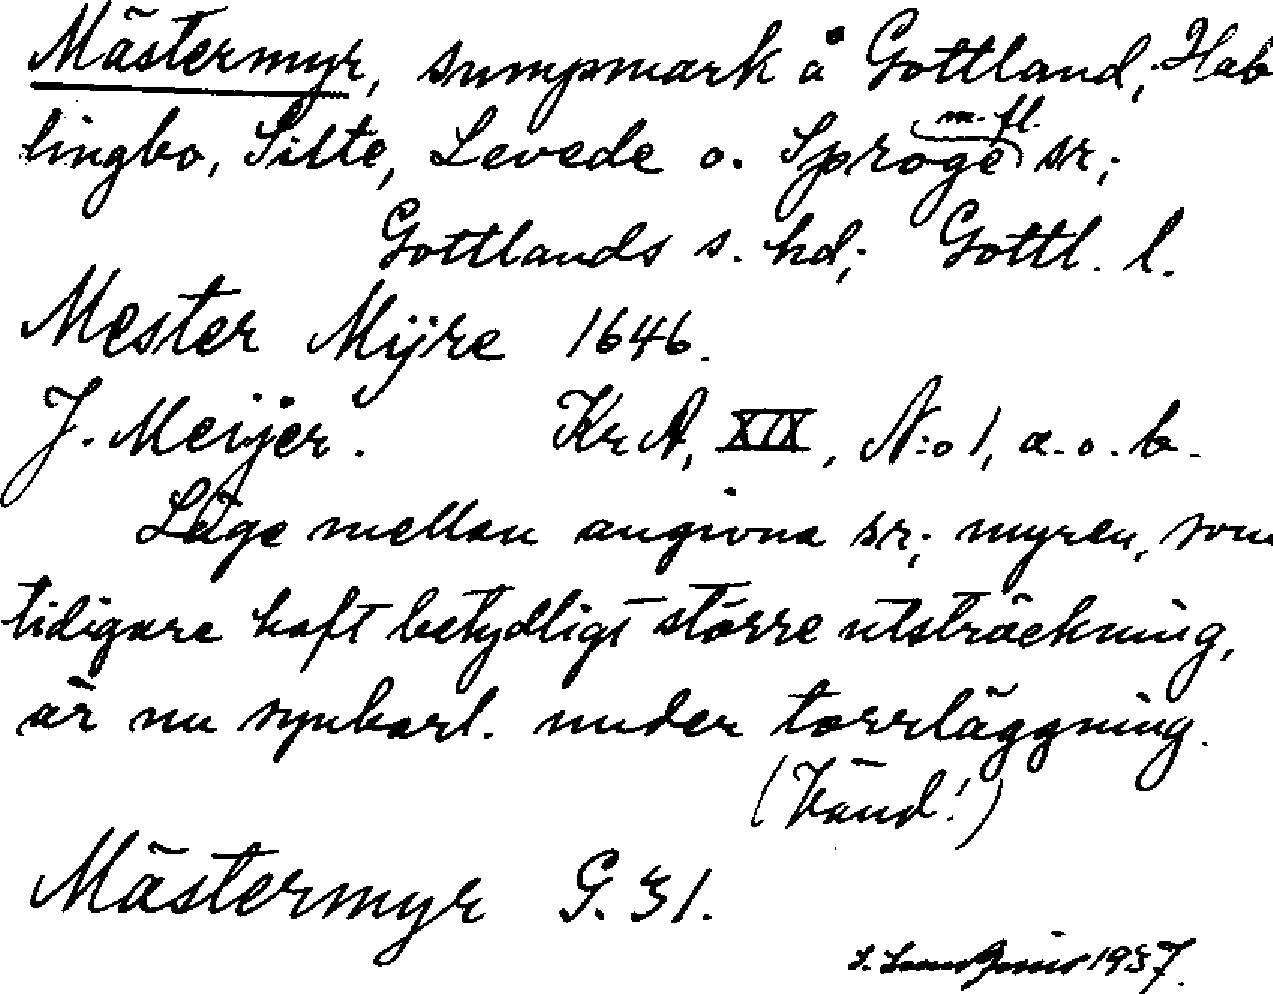 Mästermyr, sumpmark å Gottland, Hab
lingbo, Silte, Levede o. Sproge m. fl. sr;
Gottlands s. hd; Gottl. l.
Mester Mÿre 1646.
J. Meijer. Kr A, XIX, N:o 1, a. o. b.
Läge mellan angivna sr; myren, som
tidigare haft betydligt större utsträckning,
är nu synbarl. under torrläggning.
(Vänd!)
Mästermyr G. 31.
1937.